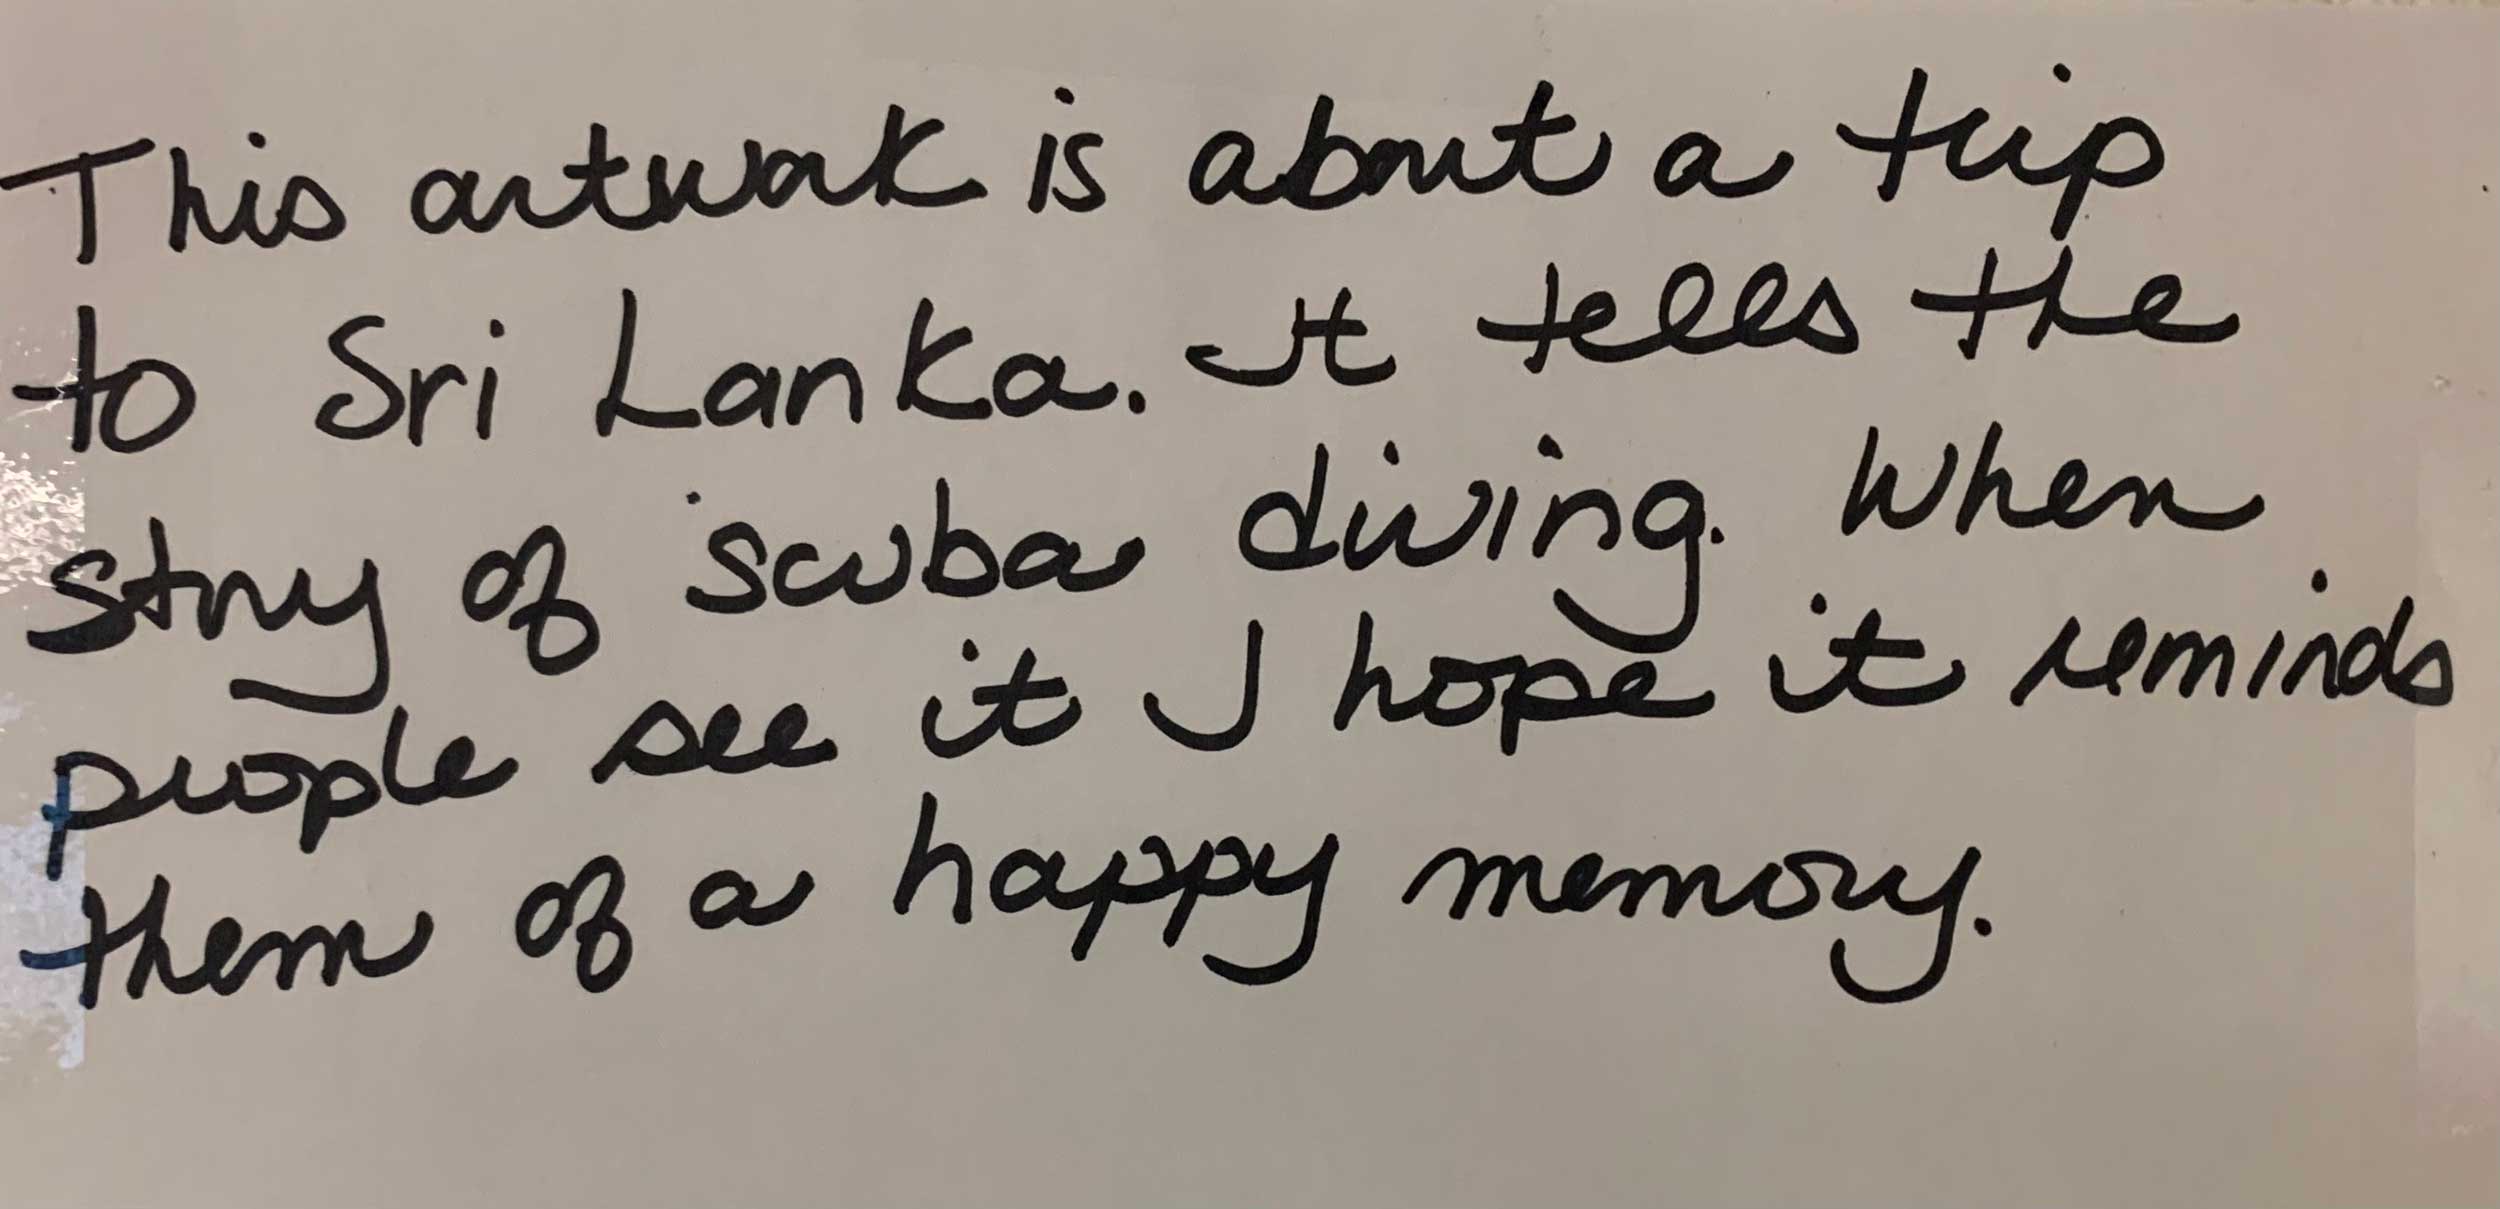 This artwork is about a trip
to Sri Lanka. It tells the
story of scuba diving. When
people see it I hope it reminds
them of a happy memory.